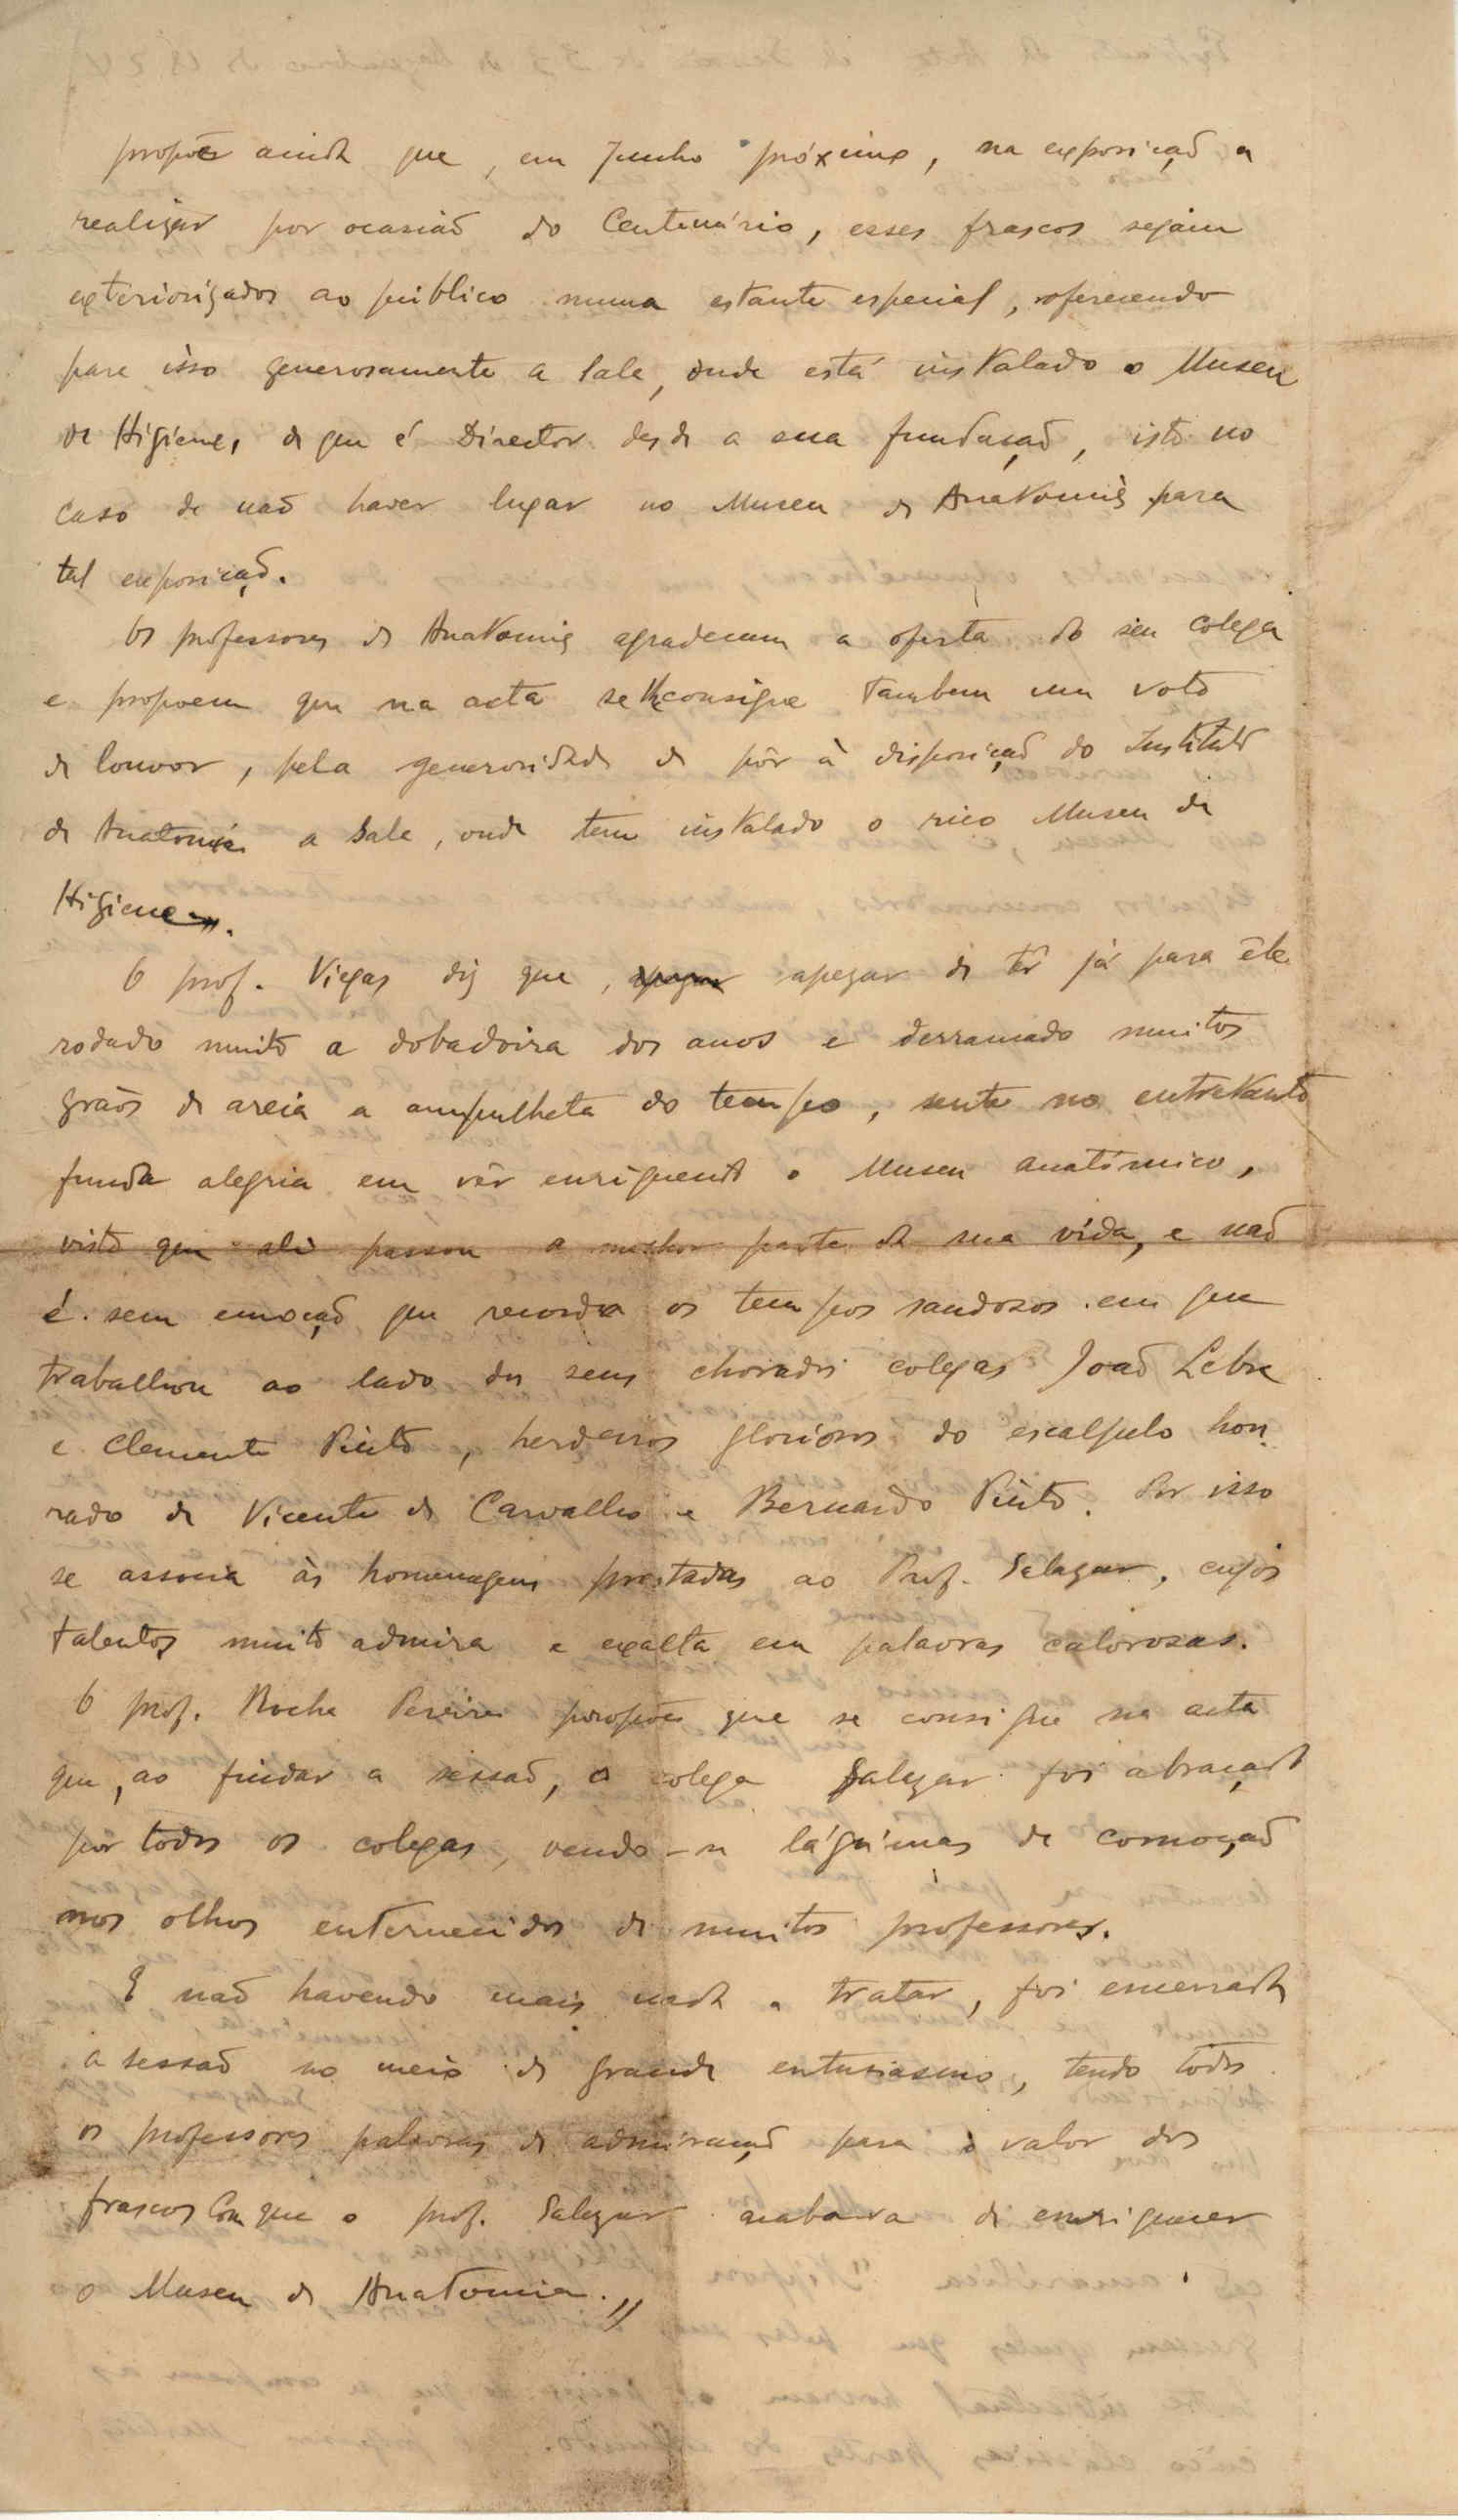 propoe ainda que, em Junho próximo, na exposição a
realizar por ocasião do Centenário, esses frascos sejam
exteriorizados ao público numa estante especial, oferecendo
para isso generosamente a sala, onde está instalado o Museu
de Higiene, de que é Director desde a sua fundação, isto no
caso de não haver lugar no Museu de Anatomia para
tal exposição.
Os professores de Anatomia agradecem a oferta do seu colega
e propoem que na acta se consigne tambem um voto
de louvor, pela generosidade de pôr à disposição do Instituto
de Anatomia a sala, onde tem instalado o rico Museu de
Higiene.
O prof. Viegas diz que, apezar de têr já para êle
rodado muito a dobadoira dos anos e derramado muitos
grãos de areia a ampulheta do tempo, sente no entretanto
funda alegria em vêr enriquecido o Museu anatómico,
visto que ali passou a melhor parte da sua vida, e não
é sem emoção que recorda os tempos saudosos em que
trabalhou ao lado dos seus chorados colegas João Lebre
e Clemente Pinto, herdeiros gloriosos do escalpelo hon-
rado de Vicente de Carvalho e Bernardo Pinto. Por isso
se associa às homenagens prestadas ao Prof. Salazar, cujos
talentos muito admira e exalta em palavras calorosas.
O prof. Rocha Pereira propoe que se consigne na acta
que, ao findar a sessão, o colega Salazar foi abraçado
por todos os colegas, vendo-se lágrimas de comoção
nos olhos enternecidos de muitos professores.
E não havendo mais nada a tratar, foi encerrada
a sessão no meio de grande entusiasmo, tendo todos
os professores palavras de admiração para o valor dos
frascos com que o prof. Salazar acabava de enriquecer
o Museu de Anatomia.//